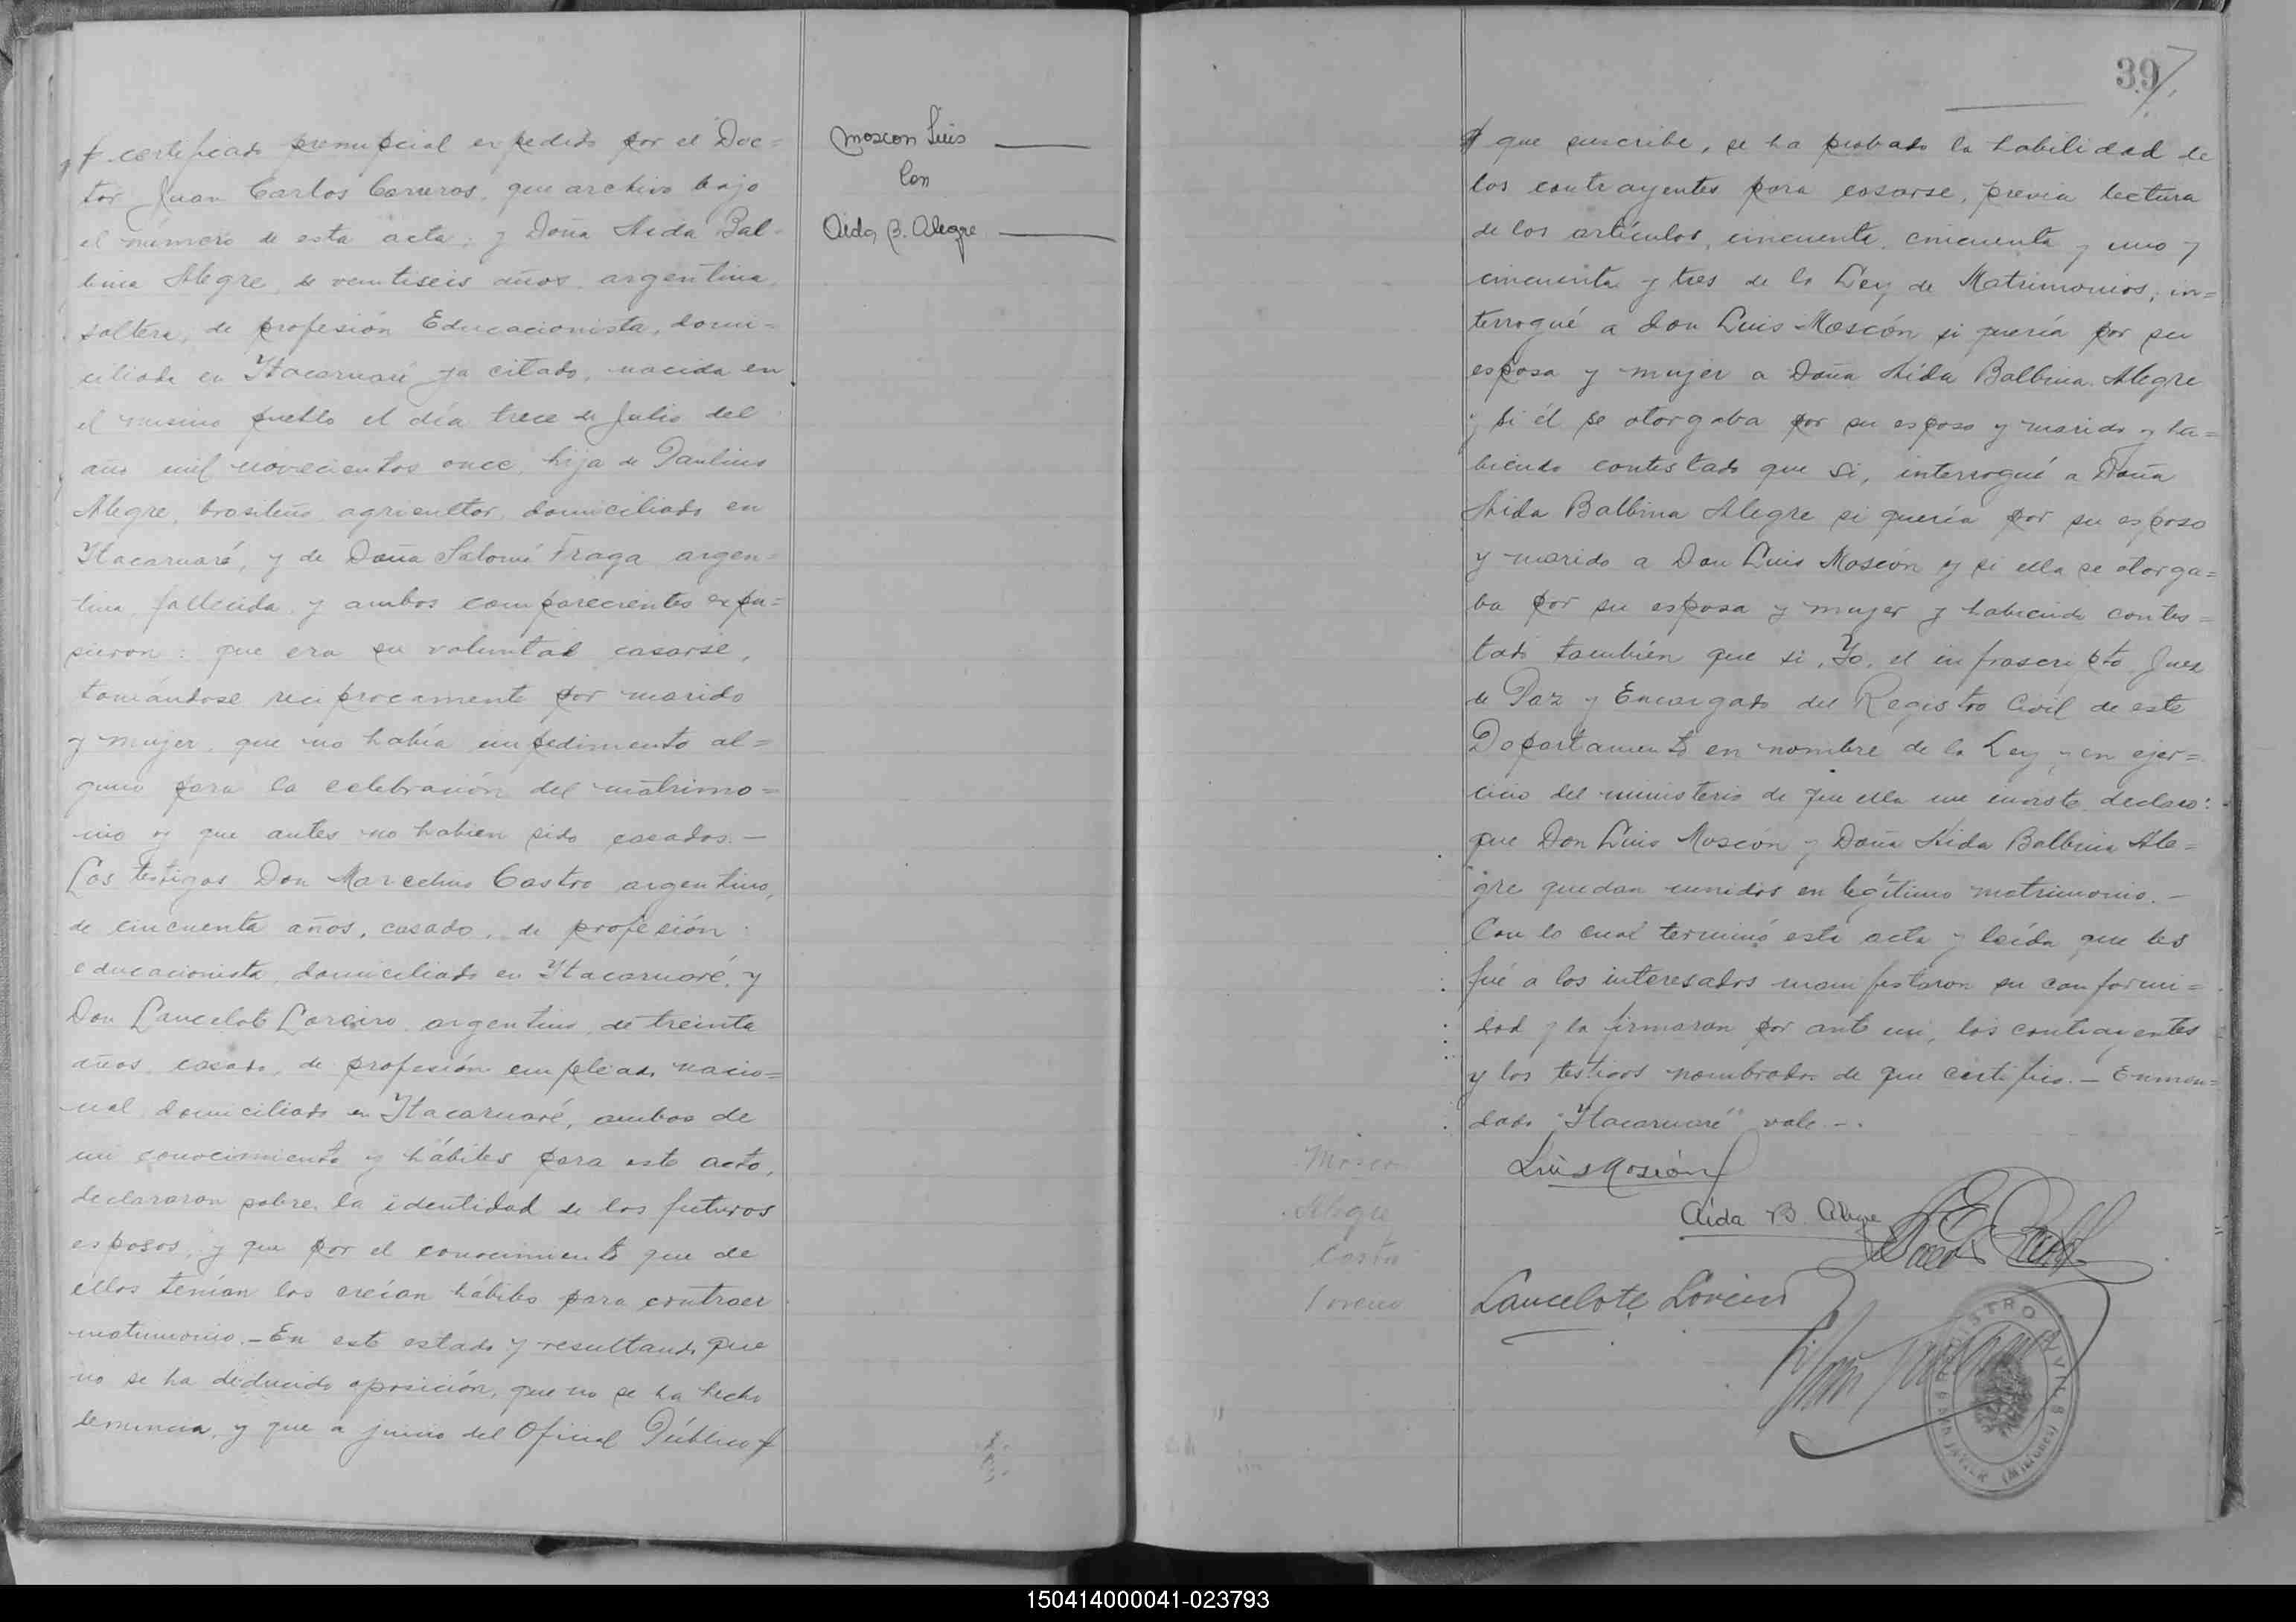 certificado prenupcial expedido por el Doc=
tor Juan Carlos que archivo bajo
el número de esta acta; y Doña Aida Bal=
bina Alegre, de veintiseis años, argentina,
soltera, de profesión Educacionista, domi=
ciliada en Itacaruaré ya citado, nacida en
el mismo pueblo el día trece de Julio del
año mil novecientos once, hija de Paulino
Alegre, brasileño, agricultor, domiciliado en
Itacaruaré, y de Doña Salomé Fraga argen=
tina, fallecida, y ambos comparecientes expu=
sieron: que era su voluntad casarse,
tomándose reciprocamente por marido
y mujer, que no había impedimento al=
guno para la celebración del matrimo=
nio y que antes no habien sido casados.—
Los testigos Don Marcelino Castro argentino,
de cincuenta años, casado, de profesión
educacionista, domiciliado en Itacaruaré, y
Don Lancelote Loreiro, argentino, de treinta
años, casado, de profesión empleado nacio=
nal, domiciliado en Itacaruaré, ambos de
mi conocimiento y hábiles para este acto,
declararon sobre la identidad de los futuros
esposos, y que por el conocimiento que de
ellos tenían los creían hábiles para contraer
matrimonio.—En este estado y resultando que
no se ha deducido oposición, que no se ha hecho
denuncia, y que a juicio del Oficial Público
Moscon Luis
Con
Aida B. Alegre
39
que suscribe, se ha probado la habilidad de
los contrayentes para casarse, previa lectura
de los artículos, cincuenta, cincuenta y uno y
cincuenta y tres de la Ley de Matrimonios, in=
terrogué a don Luis Moscón si quería por su
esposa y mujer a Doña Aída Balbina Alegre
y si él se otorgaba por su esposo y marido y ha=
biendo contestado que si, interrogué a Doña
Aida Balbina Alegre si quería por su esposo
y marido a Don Luis Moscón y si ella se otorga=
ba por su esposa y mujer y habiendo contes=
tado también que si, Yo, el infrascripto Juez
de Paz y Encargado del Registro Civil de este
Departamento en nombre de la Ley y en ejer=
cicio del ministerio de que ella me inviste declaro:
que Don Luis Moscón y Doña Aida Balbina Ale=
gre quedan unidos en legítimo matrimonio.—
Con lo cual terminó esta acta y leída que les
fué a los interesados manifestaron su conformi=
dad y la firmaron por ante mi, los contrayentes
y los testigos nombrados de que certifico.— Enmen=
dado "Itacaruaré" vale.—
Mosco
Alegre
Castro
Loreiro
Luis Moscón
Aida B. Alegre
Lancelote Loreiro
REGISTRO CIVIL
SAN JAVIER (Misiones)
150414000041-023793